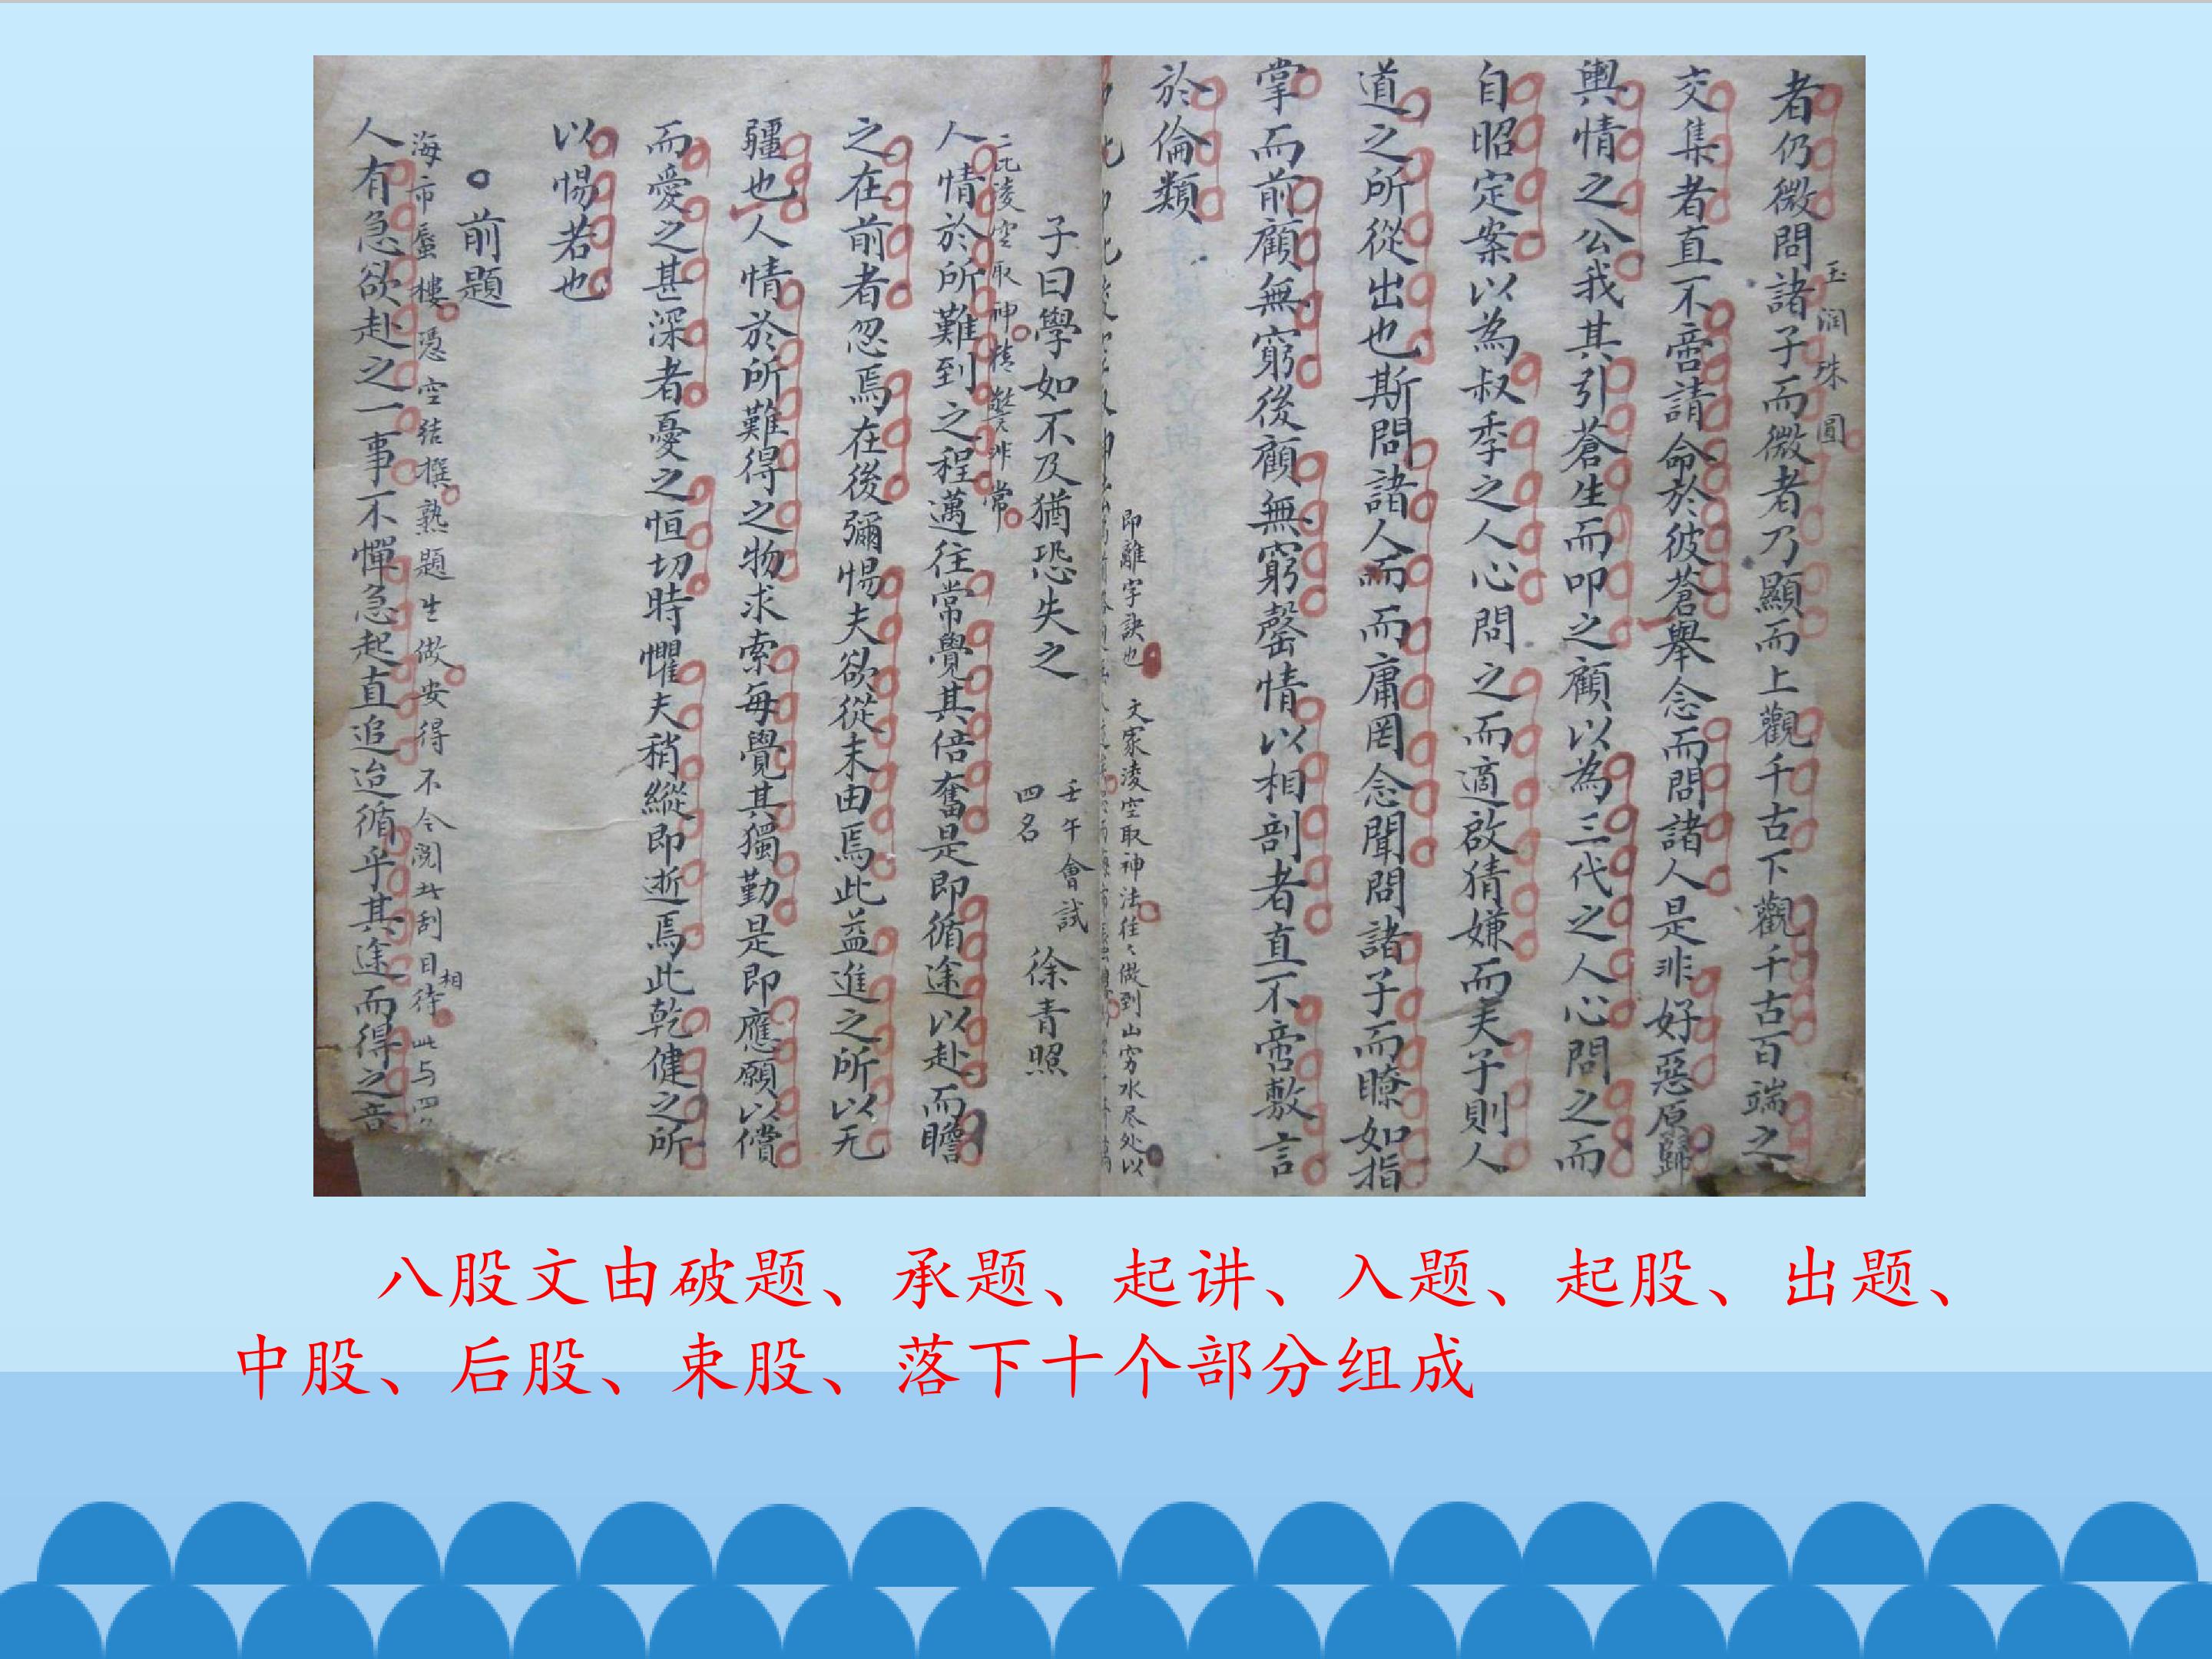 玉润珠圓
者仍微問諸子而微者乃顯而上觀千古下觀千古百端之
交集者直不啻請命於彼蒼舉念而問諸人是非好惡原歸
輿情之公我其引蒼生而叩之顧以為三代之人心問之而
自昭定案以為叔季之人心問之而適啟猜嫌而夫子則人
道之所從出也斯問諸人而而庸罔念聞問諸子而瞭如指
掌而前顧無窮後顧無窮罄情以相剖者直不啻敷言
於倫類
即離字訣也 文家淩空取神法往々做到山穷水尽处以
子曰學如不及猶恐失之 壬午會試四名 徐青照
二比淩空取神精警非常
人情於所難到之程邁往常覺其倍奮是即循途以赴而瞻
之在前者忽焉在後彌惕夫欲從末由焉此益進之所以无
疆也人情於所難得之物求索每覺其獨勤是即應願以償
而愛之甚深者憂之恒切時懼夫稍縱即逝焉此乾健之所
以惕若也
前題
海市蜃樓憑空结撰熟題生做安得不令閱者刮目相待此与四
人有急欲赴之一事不憚急起直追迨循乎其途而得之
八股文由破题、承题、起讲、入题、起股、出题、
中股、后股、束股、落下十个部分组成